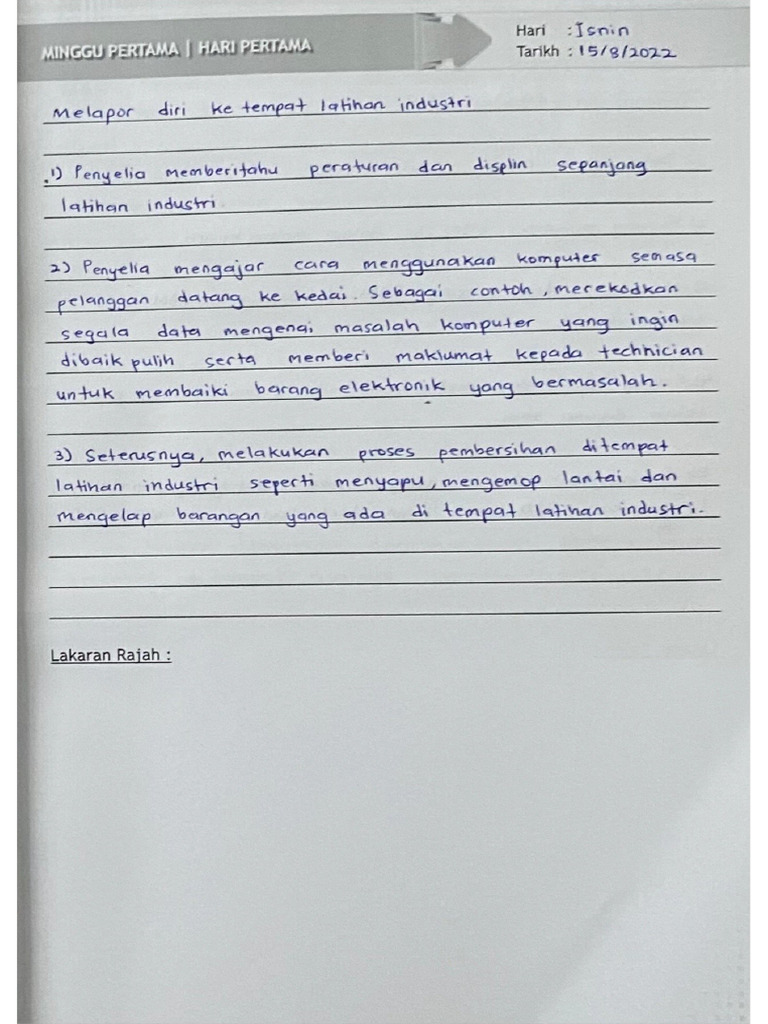 MINGGU PERTAMA | HARI PERTAMA
Hari : Isnin
Tarikh : 15/8/2022
Melapor diri ke tempat latihan industri
1) Penyelia memberitahu peraturan dan displin sepanjang
latihan industri.
2) Penyelia mengajar cara menggunakan komputer semasa
pelanggan datang ke kedai. Sebagai contoh, merekodkan
segala data mengenai masalah komputer yang ingin
dibaik pulih serta memberi maklumat kepada technician
untuk membaiki barang elektronik yang bermasalah.
3) Seterusnya, melakukan proses pembersihan ditempat
latihan industri seperti menyapu, mengemop lantai dan
mengelap barangan yang ada di tempat latihan industri.
Lakaran Rajah :